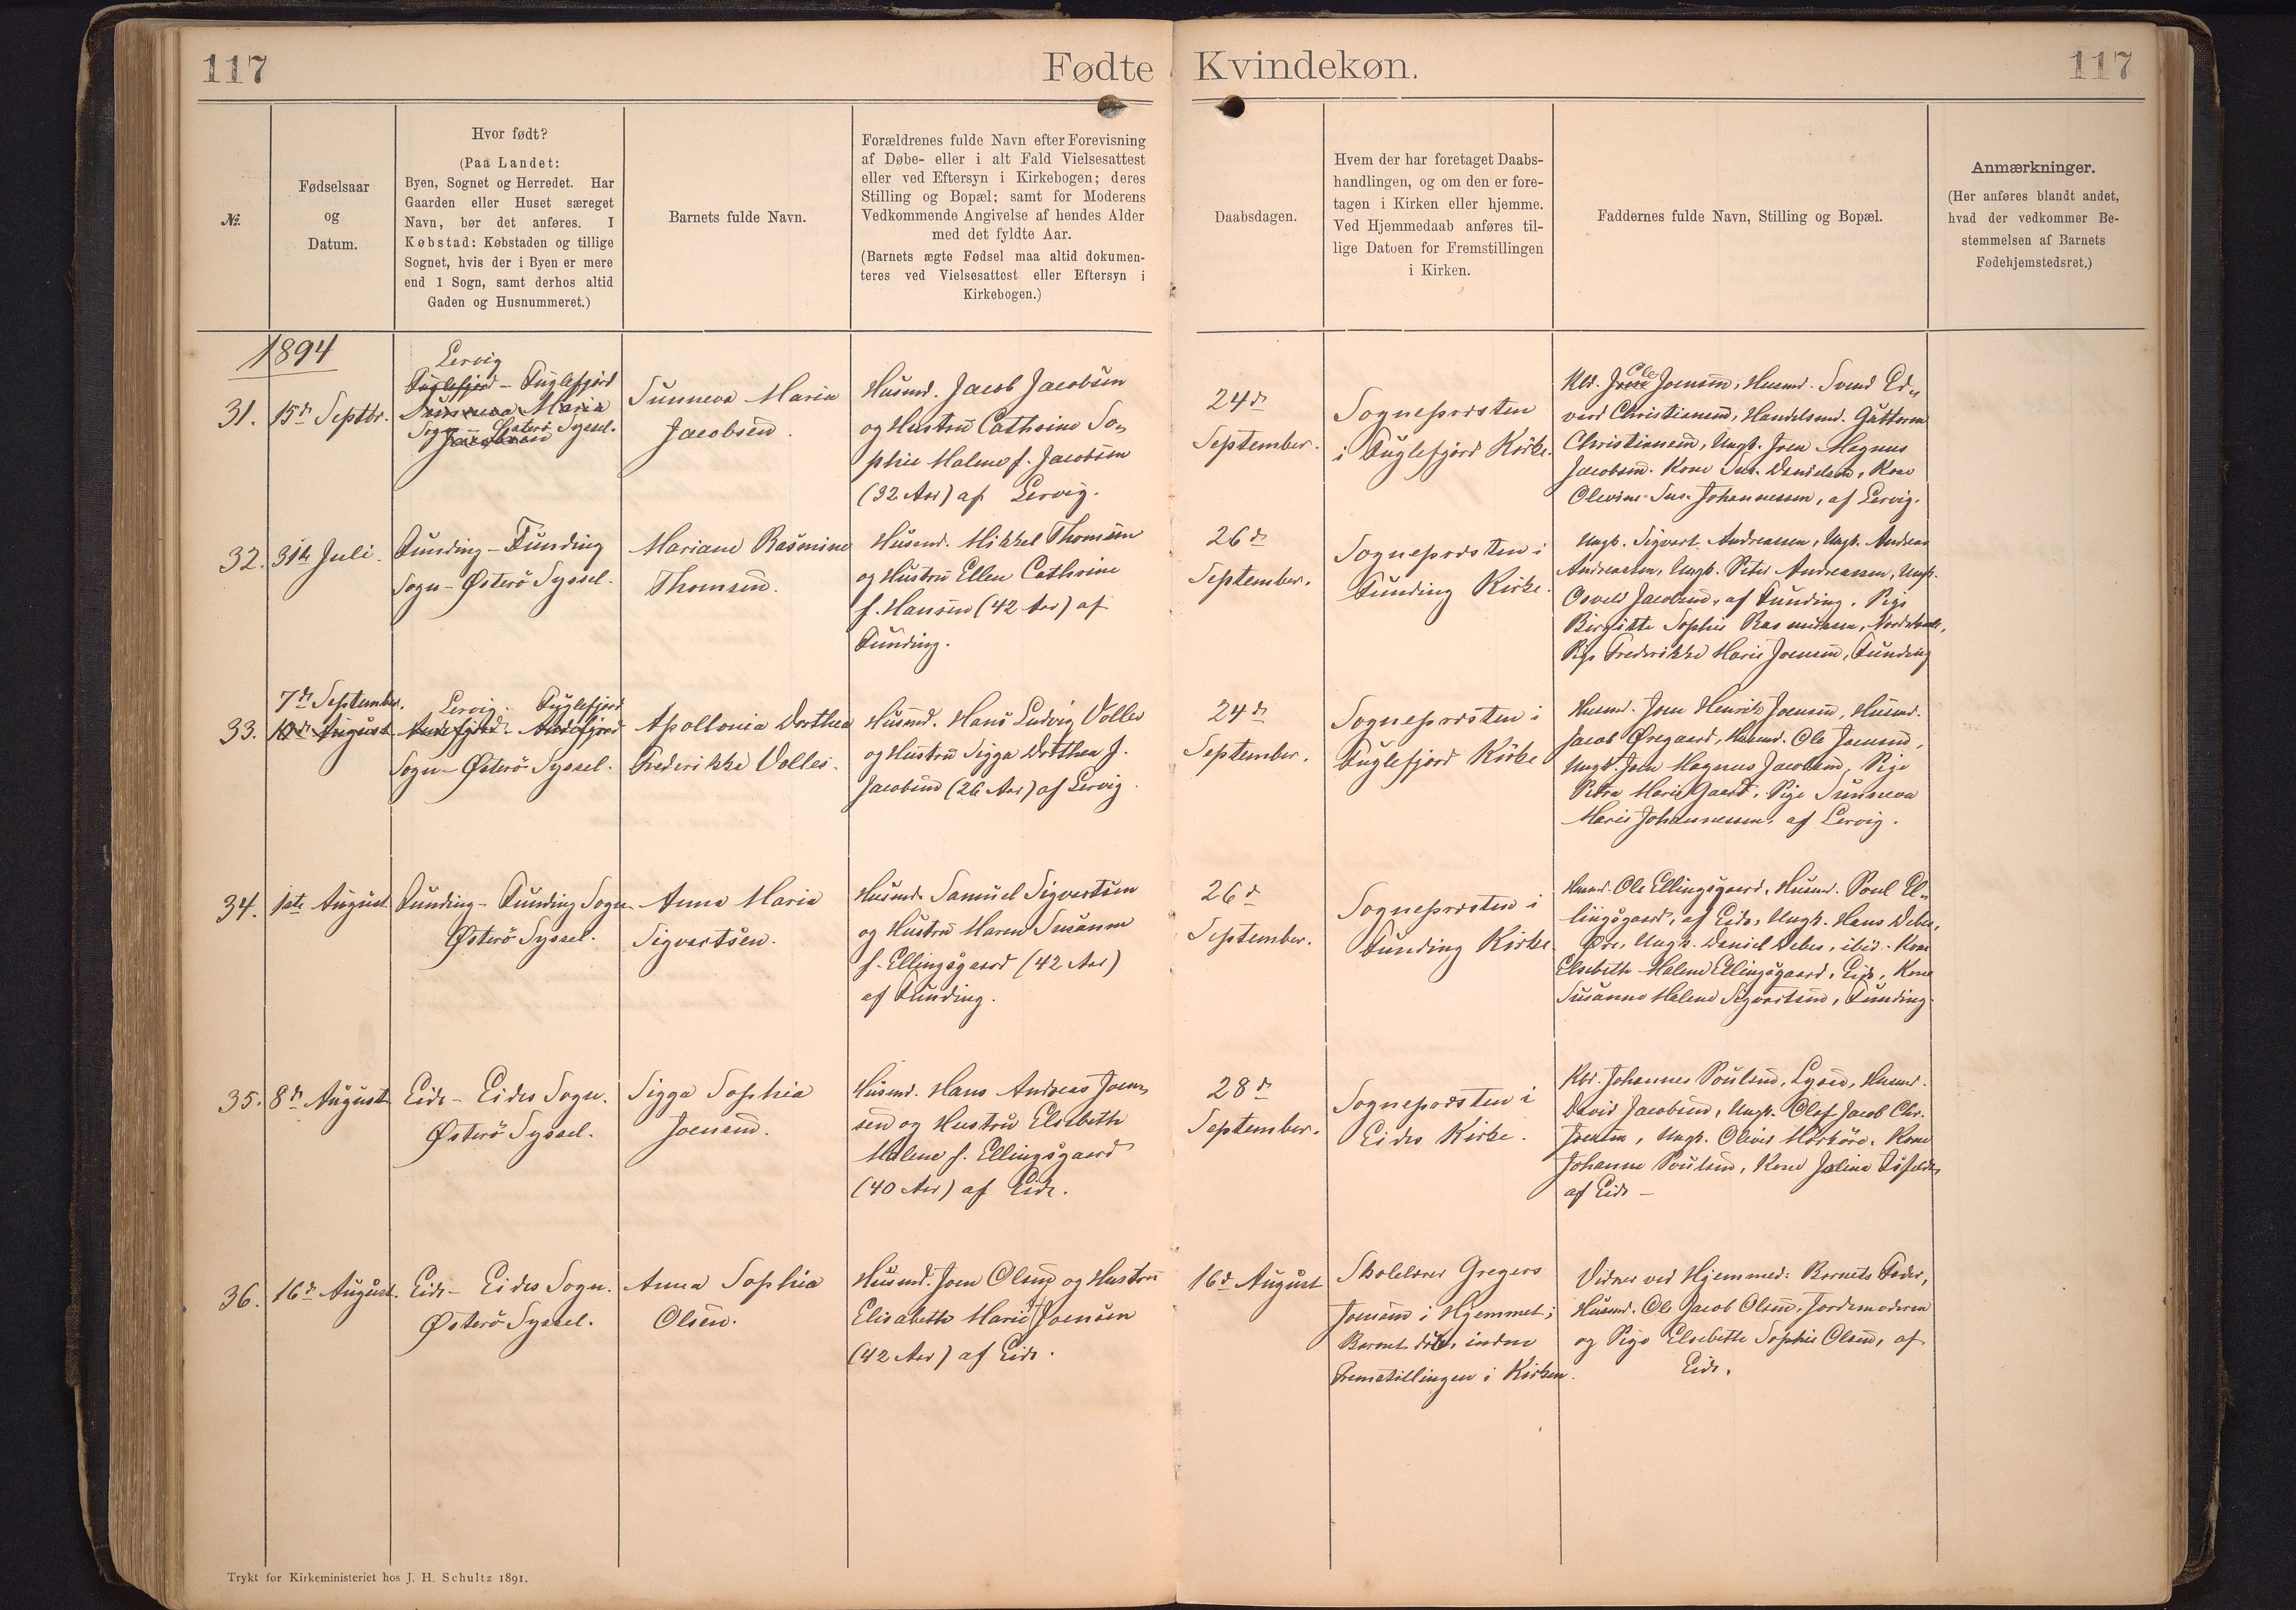 117
Fødte
Kvindekøn.
117
№.
Fødselsaar
og
Datum.
Hvor født?
(Paa Landet:
Byen, Sognet og Herredet. Har
Gaarden eller Huset særeget
Navn, bør det anføres. I
Købstad: Købstaden og tillige
Sognet, hvis der i Byen er mere
end 1 Sogn, samt derhos altid
Gaden og Husnummeret.)
Barnets fulde Navn.
Forældrenes fulde Navn efter Forevisning
af Døbe- eller i alt Fald Vielsesattest
eller ved Eftersyn i Kirkebogen; deres
Stilling og Bopæl; samt for Moderens
Vedkommende Angivelse af hendes Alder
med det fyldte Aar.
(Barnets ægte Fødsel maa altid dokumen-
teres ved Vielsesattest eller Eftersyn i
Kirkebogen.)
Daabsdagen.
Hvem der har foretaget Daabs-
handlingen, og om den er fore-
tagen i Kirken eller hjemme.
Ved Hjemmedaab anføres til-
lige Datoen for Fremstillingen
i Kirken.
Faddernes fulde Navn, Stilling og Bopæl.
Anmærkninger.
(Her anføres blandt andet,
hvad der vedkommer Be-
stemmelsen af Barnets
Fødehjemstedsret.)
1894
31.
15de Septbr.
Lervig
Fuglefjord - Fuglefjord
Sunneva Maria
Sogn - Østerö Syssel.
Jacobsen
Sunneva Maria
Jacobsen.
Husmd. Jacob Jacobsen
og Hustru Cathrine So-
phie Malene f. Jacobsen
(32 Aar) af Lervig.
24de
September.
Sognepræsten
i Fuglefjord Kirke.
Ole
Kbd. Joensen, Husmd. Svend Ed-
vard Christiansen, Handelsmd. Guttorm
Christiansen, Ungk. Joen Magnus
Jacobsen. Kone Sus. Danielsen, Kone
Olevine Sus. Johannessen, af Lervig.
32.
31te Juli.
Funding - Funding
Sogn - Østerö Syssel.
Mariane Rasmine
Thomsen.
Husmd. Mikkel Thomsen
og Hustru Ellen Cathrine
f. Hansen (42 Aar) af
Funding.
26de
September.
Sognepræsten i
Funding Kirke.
Ungk. Sigvert Andreassen, Ungk. Andreas
Andreassen, Ungk. Peter Andreassen, Ungk.
Jacobsen, af Funding. Pige
Birgitte Sophie Rasmussen,
Pige Frederikke Marie Joensen, Funding
33.
7de September.
10de August
Lervig. Fuglefjord
Andefjord - Andefjord
Sogn - Østerö Syssel.
Apollonia Dorthea
Frederikke Volles.
Husmd. Hans Ludvig Volles
og Hustru Sigga Dorthea f.
Jacobsen (26 Aar) af Lervig.
24de
September.
Sognepræsten i
Fuglefjord Kirke
Husmd. Joen Henrik Joensen, Husmd.
Jacob Øregaard, Husmd. Ole Joensen,
Ungk. Joen Magnus Jacobsen, Pige
Petra Marie Gaard, Pige Sunneva
Marie Johannessen, af Lervig.
34.
1ste August
Funding - Funding Sogn
Østerö Syssel.
Anna Maria
Sigvertsen.
Husmd. Samuel Sigvertsen
og Hustru Maren Susanne
f. Ellingsgaard (42 Aar)
af Funding.
26de
September.
Sognepræsten i
Funding Kirke.
Husmd. Ole Ellingsgaard, Husmd. Poul El-
lingsgaard, af Eide, Ungk. Hans Debes,
Øre, Ungk. Daniel Debes, ibid. Kone
Elsebeth Malene Ellingsgaard, Eide, Kone
Susanne Malene Sigvertsen, Funding.
35.
8de August
Eide - Eides Sogn.
Østerö Syssel.
Sigga Sophia
Joensen.
Husmd. Hans Andreas Joen-
sen og Hustru Elsebeth
Malene f. Ellingsgaard
(40 Aar) af Eide.
28de
September.
Sognepræsten i
Eides Kirke.
Kbd. Johannes Poulsen, Husmd.
David Jacobsen, Ungk. Olaf Jacob Chr.
Joensen, Ungk. Oliver Mörköre, Kone
Johanne Poulsen, Kone
af Eide -
36.
16de August.
Eide - Eides Sogn.
Østerö Syssel.
Anna Sophia
Olsen.
Husmd. Joen Olsen og Hustru
Elisabeth Marie f. Joensen
(42 Aar) af Eide.
16de August
Skolelærer Gregers
Joensen i Hjemmet;
Barnet döde inden
Fremstillingen i Kirken.
Vidner ved Hjemmed: Barnets Fader,
Husmd. Ole Jacob Olsen, Jordemoderen
og Pige Elsebeth Sophie Olsen, af
Eide.
Trykt for Kirkeministeriet hos J. H. Schultz 1891.